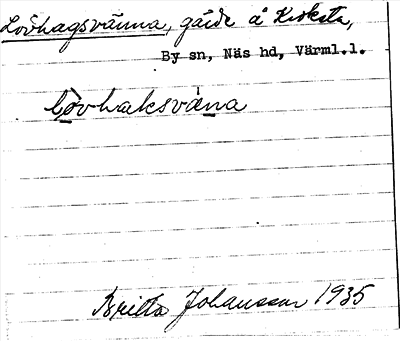 Lövhagsvänna, gärde å Kroksta,
By sn, Näs hd, Värml.l.
lövhaksväna
Britta Johansson 1935